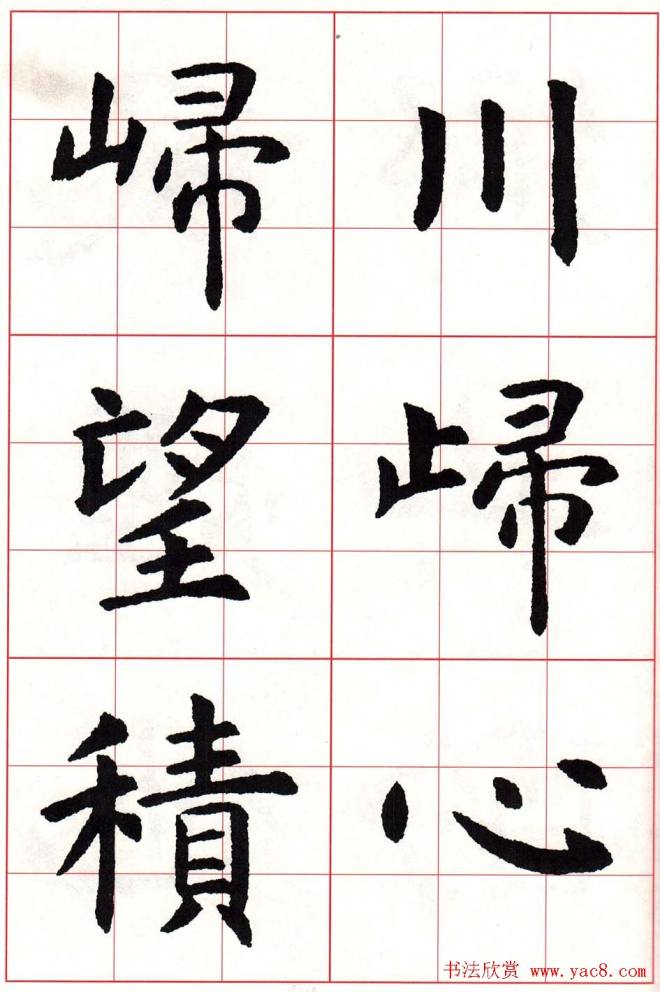 川㱕心
望積
书法欣赏 www.yac8.com